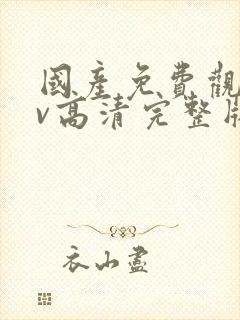 國產免費觀
v高清完整版
衣山盡